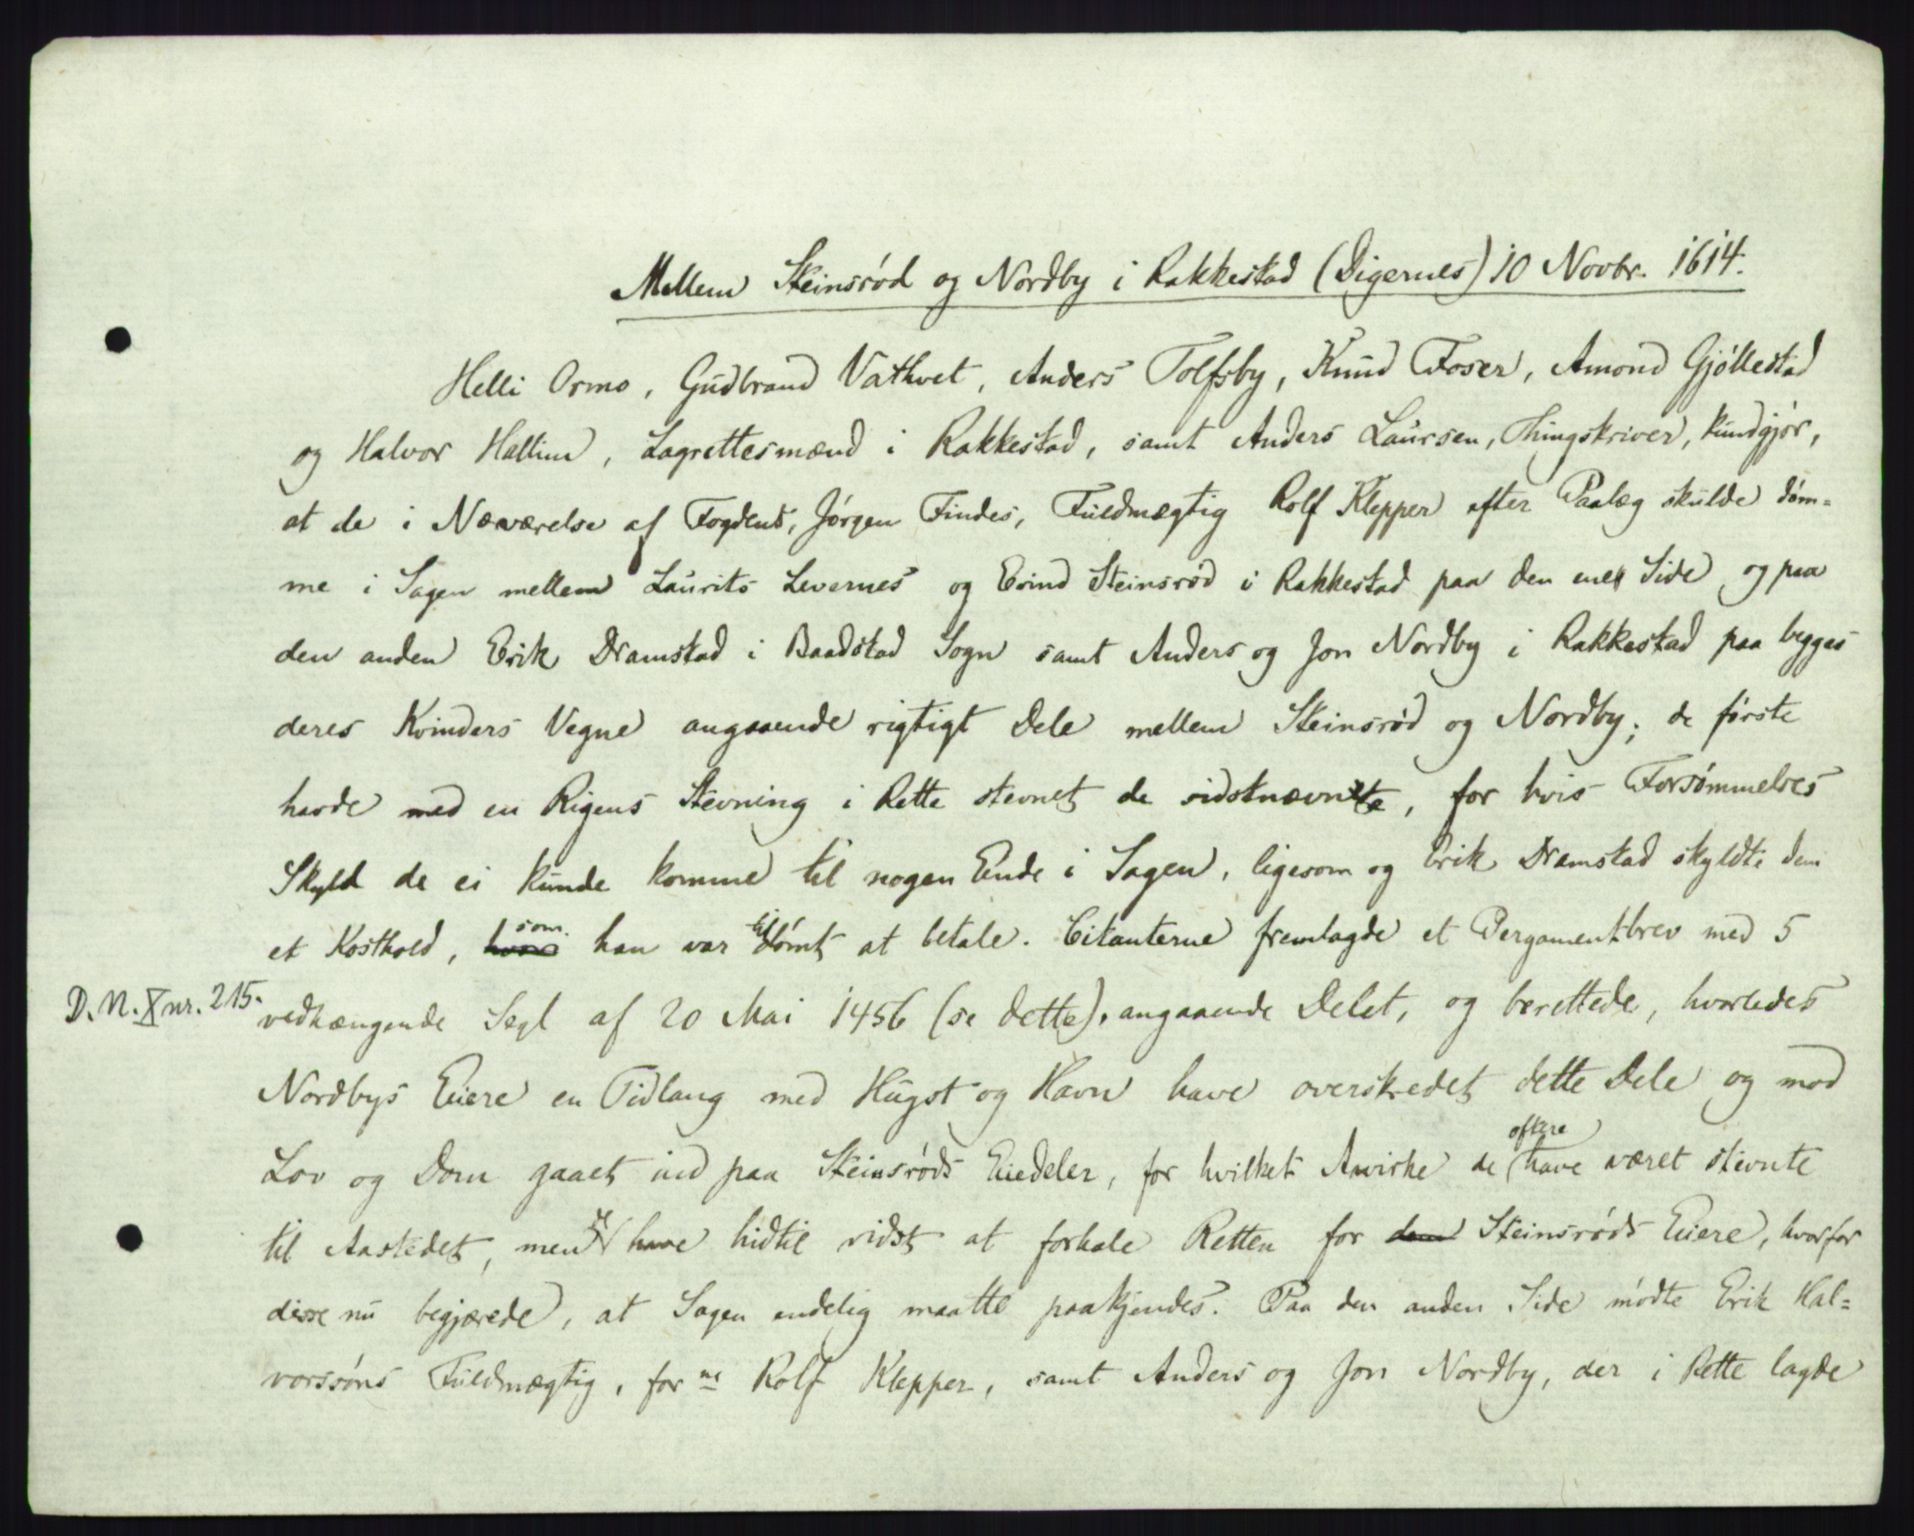 Mellem Steinsrød og Nordby i Rakkestad (Digernes) 10 Novbr. 1614.
Helli Ormo, Gudbrand Vathvet, Anders Tolfsby, Knud Foser, Amond Gjøllestad
og Halvor Hallin, Lagrettesmænd i Rakkestad, samt Anders Laursen, Thingskriver, kundgjør,
at de i Nærværelse af Fogdens, Jørgen Findes, Fuldmægtig Rolf Klepper efter Paalæg skulde døm-
me i Sagen mellem Laurits Levernes og Evind Steinsrød i Rakkestad paa den ene Side og paa
den anden Erik Dramstad i Baadstad Sogn samt Anders og Jon Nordby i Rakkestad paa begges
deres Kvinders Vegne angaaende rigtigt Dele mellem Steinsrød og Nordby; de første
havde med en Rigens Stevning i Rette stevnet de sidstnævnte, for hvis Forsømmelses
Skyld de ei kunde komme til nogen Ende i Sagen, ligesom og Erik Dramstad skyldte dem
et Kosthold, som han var tildømt at betale. Citanterne fremlagde et Pergamentbrev med 5
D. N. X nr. 215. vedhængende Segl af 20 Mai 1456 (se dette), angaaende Delet, og berettede, hvorledes
Nordbys Eiere en Tidlang med Hugst og Havn have overskredet dette Dele og mod
Lov og Dom gaaet ind paa Steinsrøds Eiedeler, for hvilket Awirke de oftere have været stevnte
til Aastedet, men de have hidtil vidst at forhale Retten for dem Steinsrøds Eiere, hvorfor
disse nu begjærede, at Sagen endelig maatte paakjendes. Paa den anden Side mødte Erik Hal-
vorssøns Fuldmægtig, for ne Rolf Klepper, samt Anders og Jon Nordby, der i Rette lagde